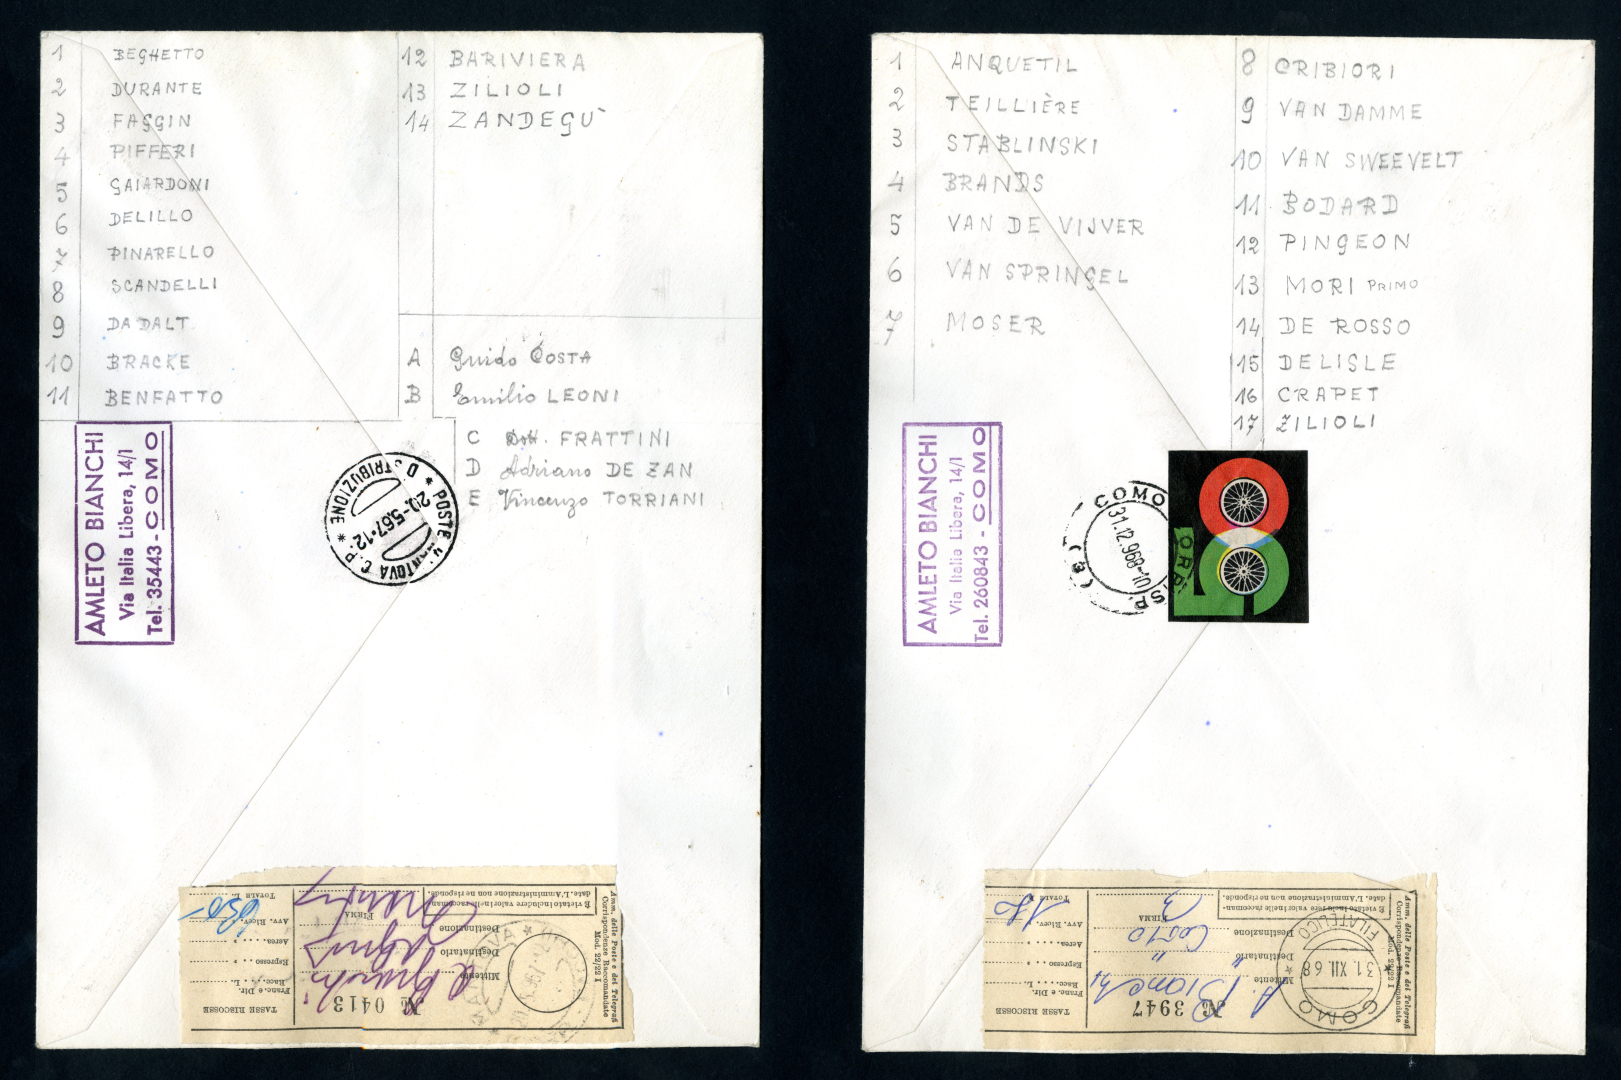 1 BEGHETTO
2 DURANTE
3 FAGGIN
4 PIFFERI
5 GAIARDONI
6 DELILLO
7 PINARELLO
8 SCANDELLI
9 DA DALT
10 BRACKE
11 BENFATTO
12 BARIVIERA
13 ZILIOLI
14 ZANDEGÙ
A Guido COSTA
B Emilio LEONI
C Dott. FRATTINI
D Adriano DE ZAN
E Vincenzo TORRIANI
AMLETO BIANCHI
Via Italia Libera, 14/1
Tel. 35443 - COMO
POSTE MANTOVA C.P. * DISTRIBUZIONE *
20.-5.67.12
Amm. delle Poste e dei Telegrafi
Corrispondenze Raccomandate
Mod. 22/22 I
È vietato includere valori nelle raccoman-
date. L'Amministrazione non ne risponde.
Mittente
Destinatario
Destinazione
FIRMA
№ 0413
TASSE RISCOSSE
Franc. e Dir.
Racc. L.
Espresso
Aerea
Avv. Ricev.
TOTALE L.
1 ANQUETIL
2 TEILLIÈRE
3 STABLINSKI
4 BRANDS
5 VAN DE VIJVER
6 VAN SPRINGEL
7 MOSER
8 CRIBIORI
9 VAN DAMME
10 VAN SWEEVELT
11 BODARD
12 PINGEON
13 MORI PRIMO
14 DE ROSSO
15 DELISLE
16 CRAPET
17 ZILIOLI
AMLETO BIANCHI
Via Italia Libera, 14/1
Tel. 260843 - COMO
COMO
31.12.968-10
Amm. delle Poste e dei Telegrafi
Corrispondenze Raccomandate
Mod. 22/22 I
È vietato includere valori nelle raccoman-
date. L'Amministrazione non ne risponde.
COMO
31. XII. 68
FILATELICO
Mittente A. Bianchi
Destinatario "
Destinazione Como
FIRMA
№ 3947
TASSE RISCOSSE
Franc. e Dir.
Racc. L.
Espresso
Aerea
Avv. Ricev.
TOTALE L.